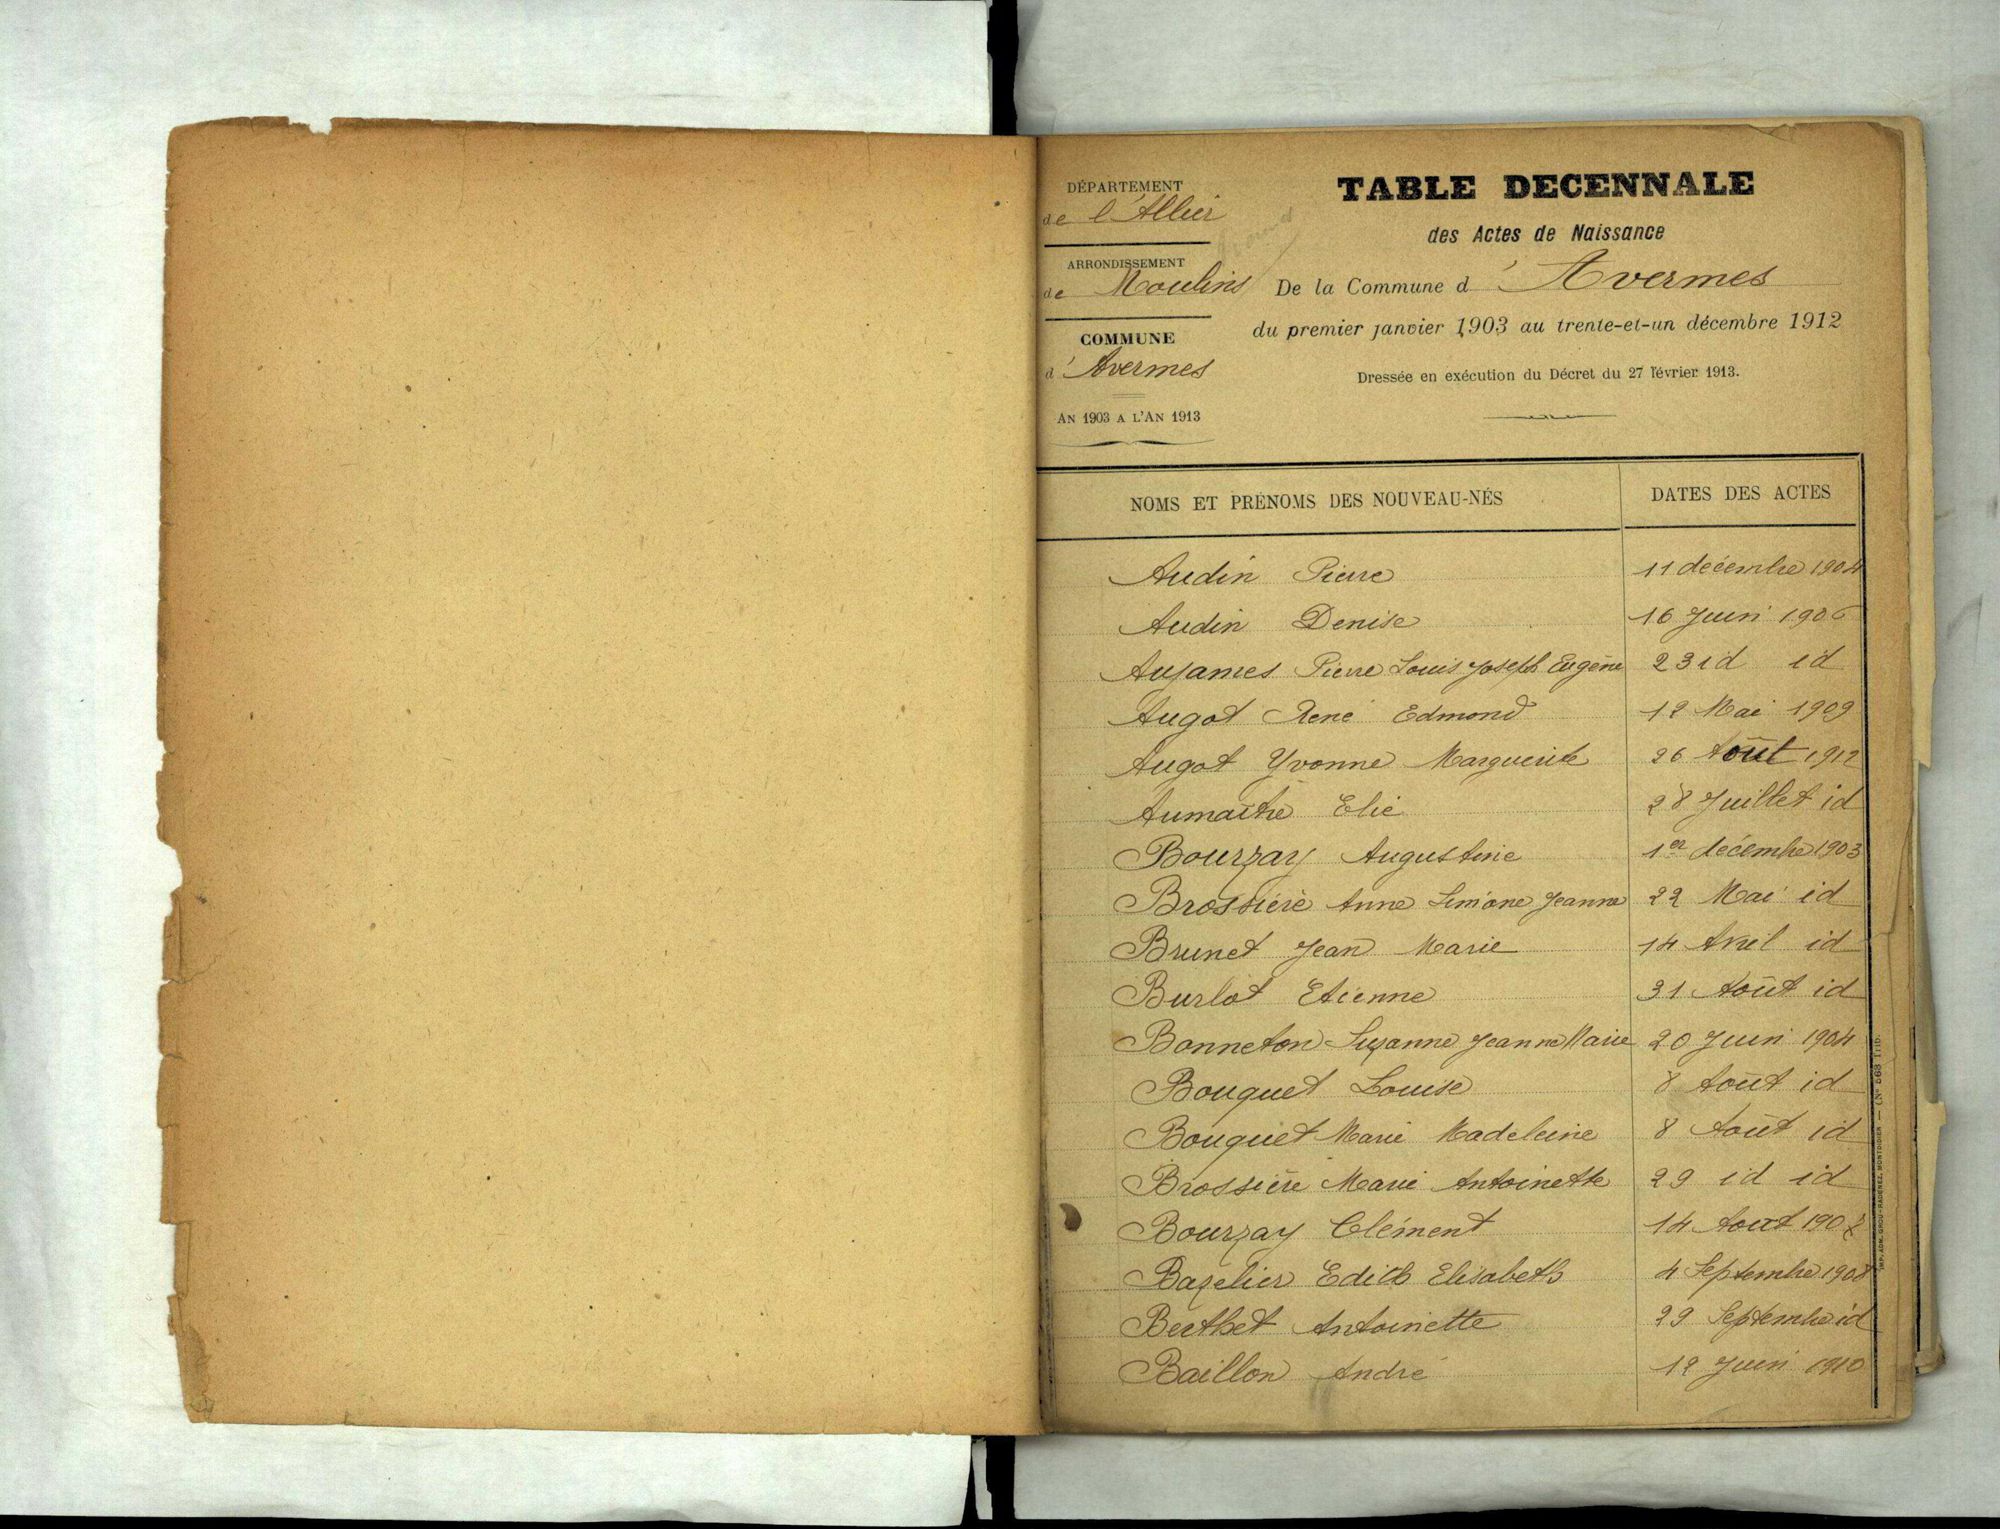 DÉPARTEMENT
de l'Allier
ARRONDISSEMENT
de Moulins
COMMUNE
d' Avermes
AN 1903 A L'AN 1913
TABLE DECENNALE
des Actes de Naissance
De la Commune d' Avermes
du premier janvier 1903 au trente-et-un décembre 1912
Dressée en exécution du Décret du 27 février 1913.
NOMS ET PRÉNOMS DES NOUVEAU-NÉS DATES DES ACTES
Audin Pierre 11 décembre 1904
Audin Denise 16 Juin 1906
Aujames Pierre Louis Joseph Eugène 23 id id
Augot René Edmond 12 Mai 1909
Augot Yvonne Marguerite 26 Août 1912
Aumaître Elie 28 Juillet id
Bourzay Augustine 1er décembre 1903
Brossière Anne Simone Jeanne 22 Mai id
Brunet Jean Marie 14 Avril id
Burlot Etienne 31 Août id
Bonneton Suzanne Jeanne Marie 20 Juin 1904
Bouquet Louise 8 Août id
Bouquet Marie Madeleine 8 Août id
Brossière Marie Antoinette 29 id id
Bourzay Clément 14 Août
Bazelier Edith Elisabeth 4 Septembre 1908
Berthet Antoinette 29 Septembre id
Baillon André 12 Juin 1910
IMP. ADM. GROU-RADENEZ, MONTDIDIER — (N° 563 Trib.